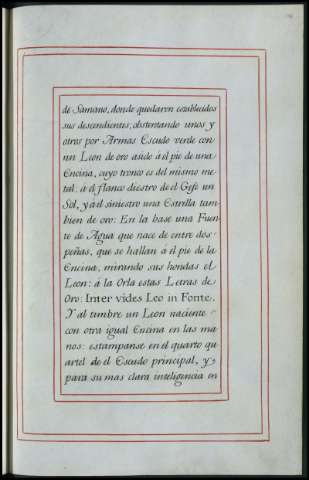 de Samano, donde quedaron establecidos
sus descendientes; obstentando unos y
otros por Armas Escudo verde con
un Leon de oro atàdo á él pie de una
Encina, cuyo tronco es del mismo me
tal: á él flanco diestro de el Gefe un
Sol, y á él siniestro una Estrella tam
bien de oro: En la base una Fuen
te de Agua que nace de entre dos
peñas, que se hallan á él pie de la
Encina, mirando sus hondas el
Leon: á la Orla estas Letras de
Oro: Inter vides Leo in Fonte.
Y al timbre un Leon naciente
con otra igual Encina en las ma
nos: estampanse en el quarto qu
artél de el Escudo principal, y
para su mas clara inteligencia en